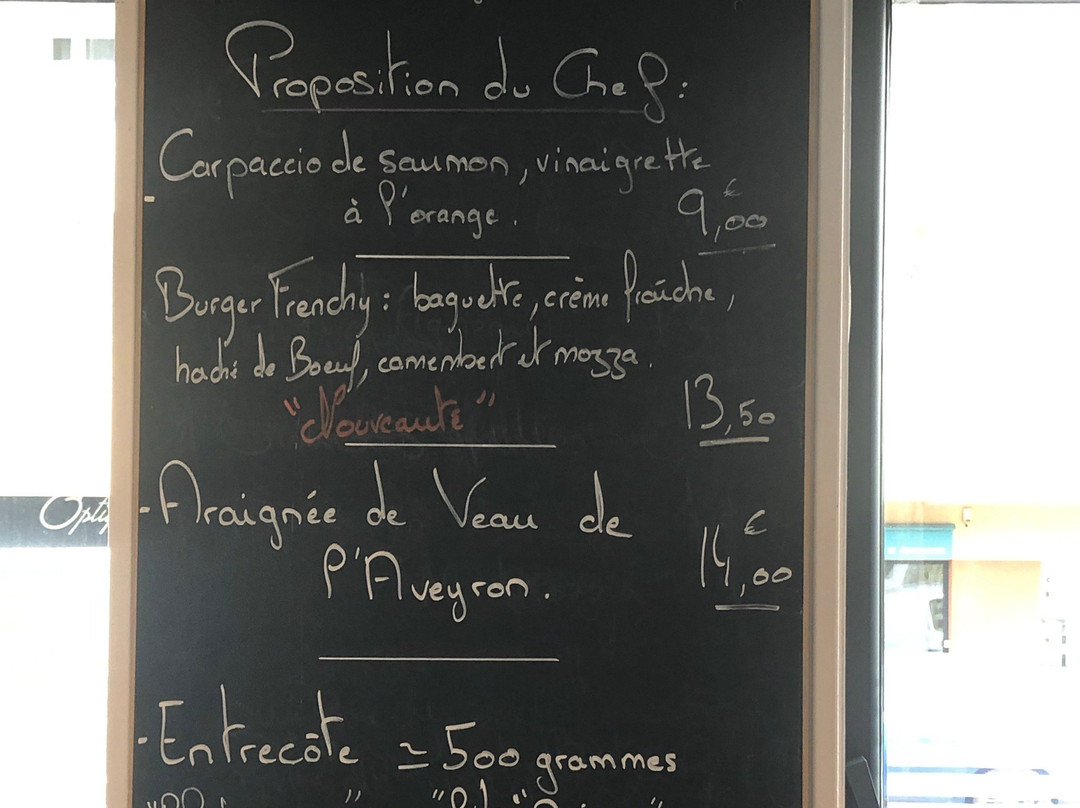 Proposition du Chef :
- Carpaccio de saumon, vinaigrette
à l'orange. 9,00 €
Burger Frenchy : baguette, crème fraîche,
haché de Boeuf, camembert et mozza.
"Nouveauté" 13,50
- Araignée de Veau de
l'Aveyron. 14,00 €
- Entrecôte ≃ 500 grammes